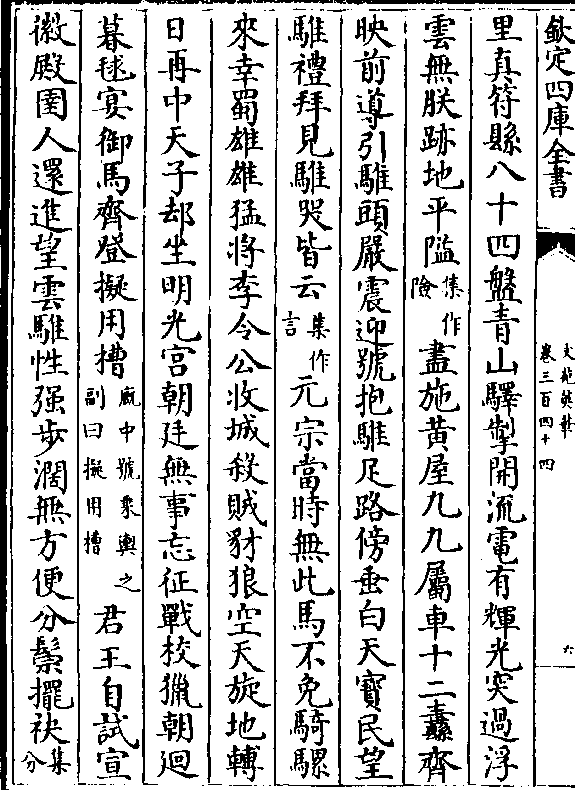 欽定四庫全書
文苑英華
卷三百四十四
六
里真符縣八十四盤青山驛掣開流電有輝光突過浮
雲無朕跡地平隘集作險盡施黃屋九九屬車十二纛齊
映前導引騅頭嚴震迎號抱騅足路傍垂白天寶民望
騅禮拜見騅哭皆云集作言元宗當時無此馬不免騎騾
來幸蜀雄雄猛將李令公收城殺賊豺狼空天旋地轉
日再中天子却坐明光宮朝廷無事忘征戰校獵朝迴
暮毬宴御馬齊登擬用槽廐中號乘輿之副曰擬用槽君王自試宣
徽殿圉人還進望雲騅性强步濶無方便分鬃擺袂集分